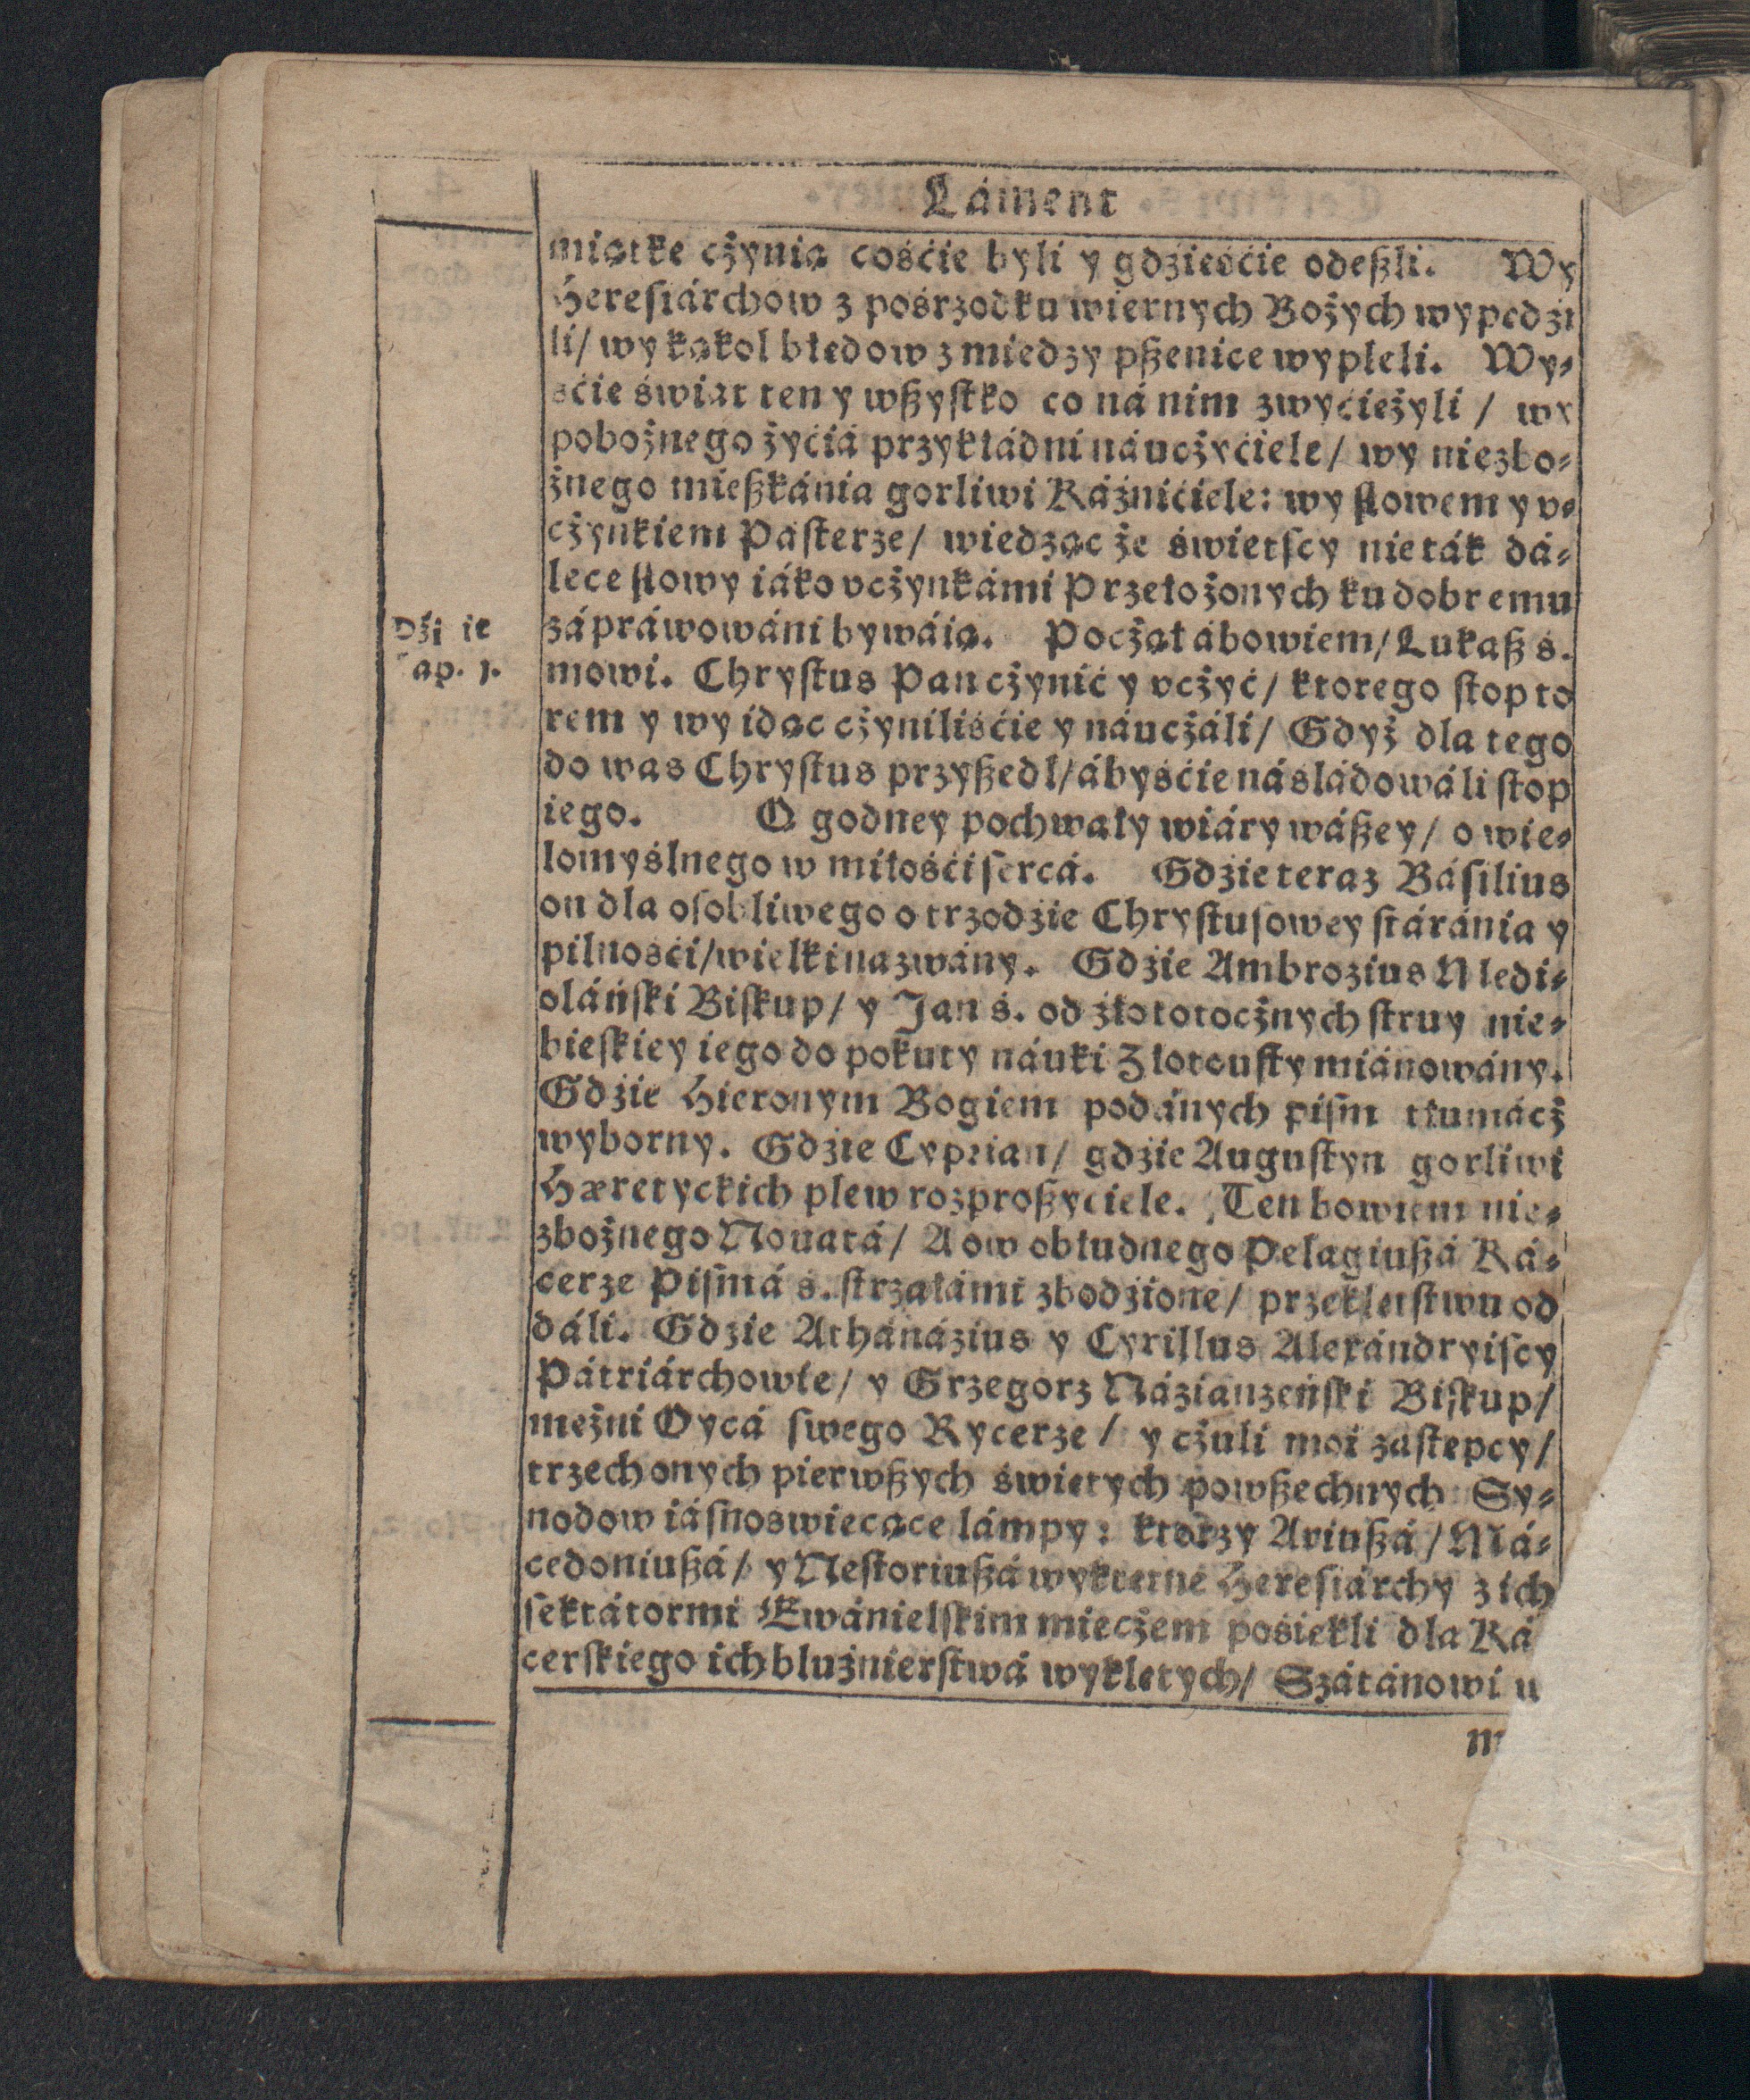 Láment
miątkę cżynią cośćie byli y gdźieśćie odeßli. Wy
Heresiárchow z pośrzodku wiernych Bożych wypędźi
li/ wy kąkol błędow z miedzy pßenice wypleli. Wy⸗
śćie świat ten y wßystko co ná nim zwyćiężyli / wy
pobożnego żyćiá przykłádni náucżyćiele/ wy niezbo⸗
żnego mießkánia gorliwi Káźnićiele: wy słowem y v⸗
cżynkiem Pásterze/ wiedząc że świetscy nie ták dá⸗
lece słowy iáko vcżynkámi Przełożonych ku dobremu
Dźi ie
ap. 1.
zápráwowáni bywáią. Pocżął ábowiem/ Lukaß ś.
mowi. Chrystus Pan cżynić y vcżyć/ ktorego stop to
rem y wy idąc cżyniliśćie y náucżáli/ Gdyż dla tego
do was Chrystus przyßedl/ ábyśćie násládowáli stop
iego. O godney pochwały wiáry wáßey/ o wie⸗
lomyślnego w miłośći sercá. Gdźie teraz Básilius
on dla osobliwego o trzodźie Chrystusowey stáránia y
pilnośći/ wielki nazwány. Gdźie Ambrozius Medi⸗
oláński Biskup/ y Jan ś. od złototocżnych struy nie⸗
bieskiey iego do pokuty náuki Złotousty miánowány.
Gdźie Hieronym Bogiem podánych pism tłumácż
wyborny. Gdźie Cyprian/ gdźie Augustyn gorliwi
Hæretyckich plew rozproßyciele. Ten bowiem nie⸗
zbożnego Nouatá/ A ow obłudnego Pelagiußá Ká⸗
cerze Pismá ś. strzałámi zbodźione/ przeklęstwu od
dáli. Gdzie Athánázius y Cyrillus Alexándryiscy
Pátriárchowie/ y Grzegorz Názianzeński Biskup/
mężni Oycá swego Rycerze / y cżuli moi zastępcy/
trzech onych pierwßych świętych powßechnych Sy⸗
nodow iásnoswiecące lámpy: ktorzy Ariußá / Má⸗
cedoniußá/ y Nestoriußá wykrętne Heresiárchy z ich
sektátormi Ewánielskim miecżem pośiekli dla Ká
cerskiego ich bluźnierstwá wyklętych/ Szátánowi u
m